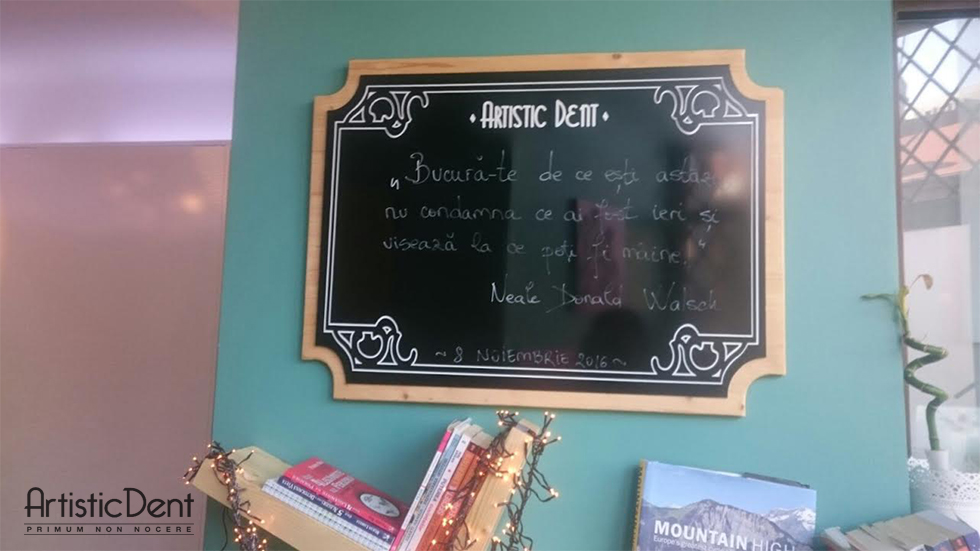 • ARTISTIC DENT •
„Bucură-te de ce ești astăzi,
nu condamna ce ai fost ieri și
visează la ce poți fi mâine."
Neale Donald Walsch
~ 8 NOIEMBRIE 2016 ~
MOUNTAIN HIGH
ArtisticDent
PRIMUM NON NOCERE